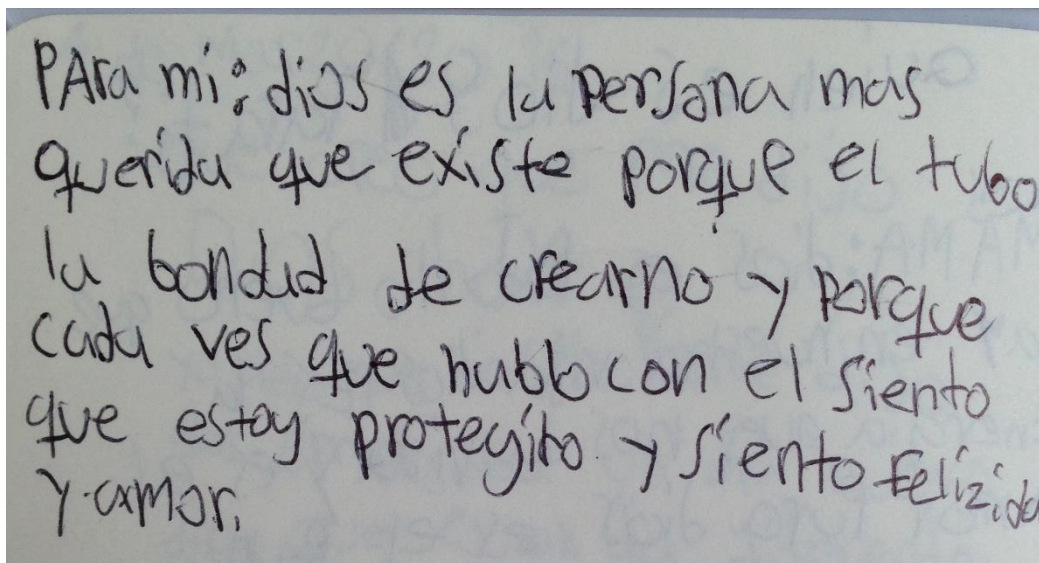 PARA mi: dios es la persona mas
querida que existe porque el tubo
la bondad de crearno y porque
cada ves que hablo con el siento
que estoy protegito y siento felizida
y amor.